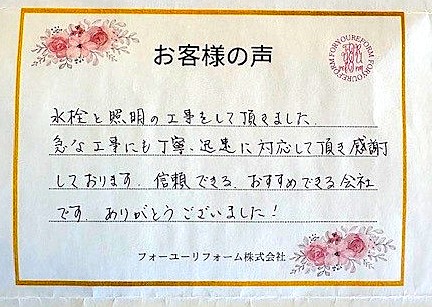 お客様の声
FORYOUREFORM FORYOUREFORM
水栓と照明の工事をして頂きました.
急な工事にも丁寧、迅速に対応して頂き感謝
しております. 信頼できる、おすすめできる会社
です. ありがとうございました!
フォーユーリフォーム株式会社